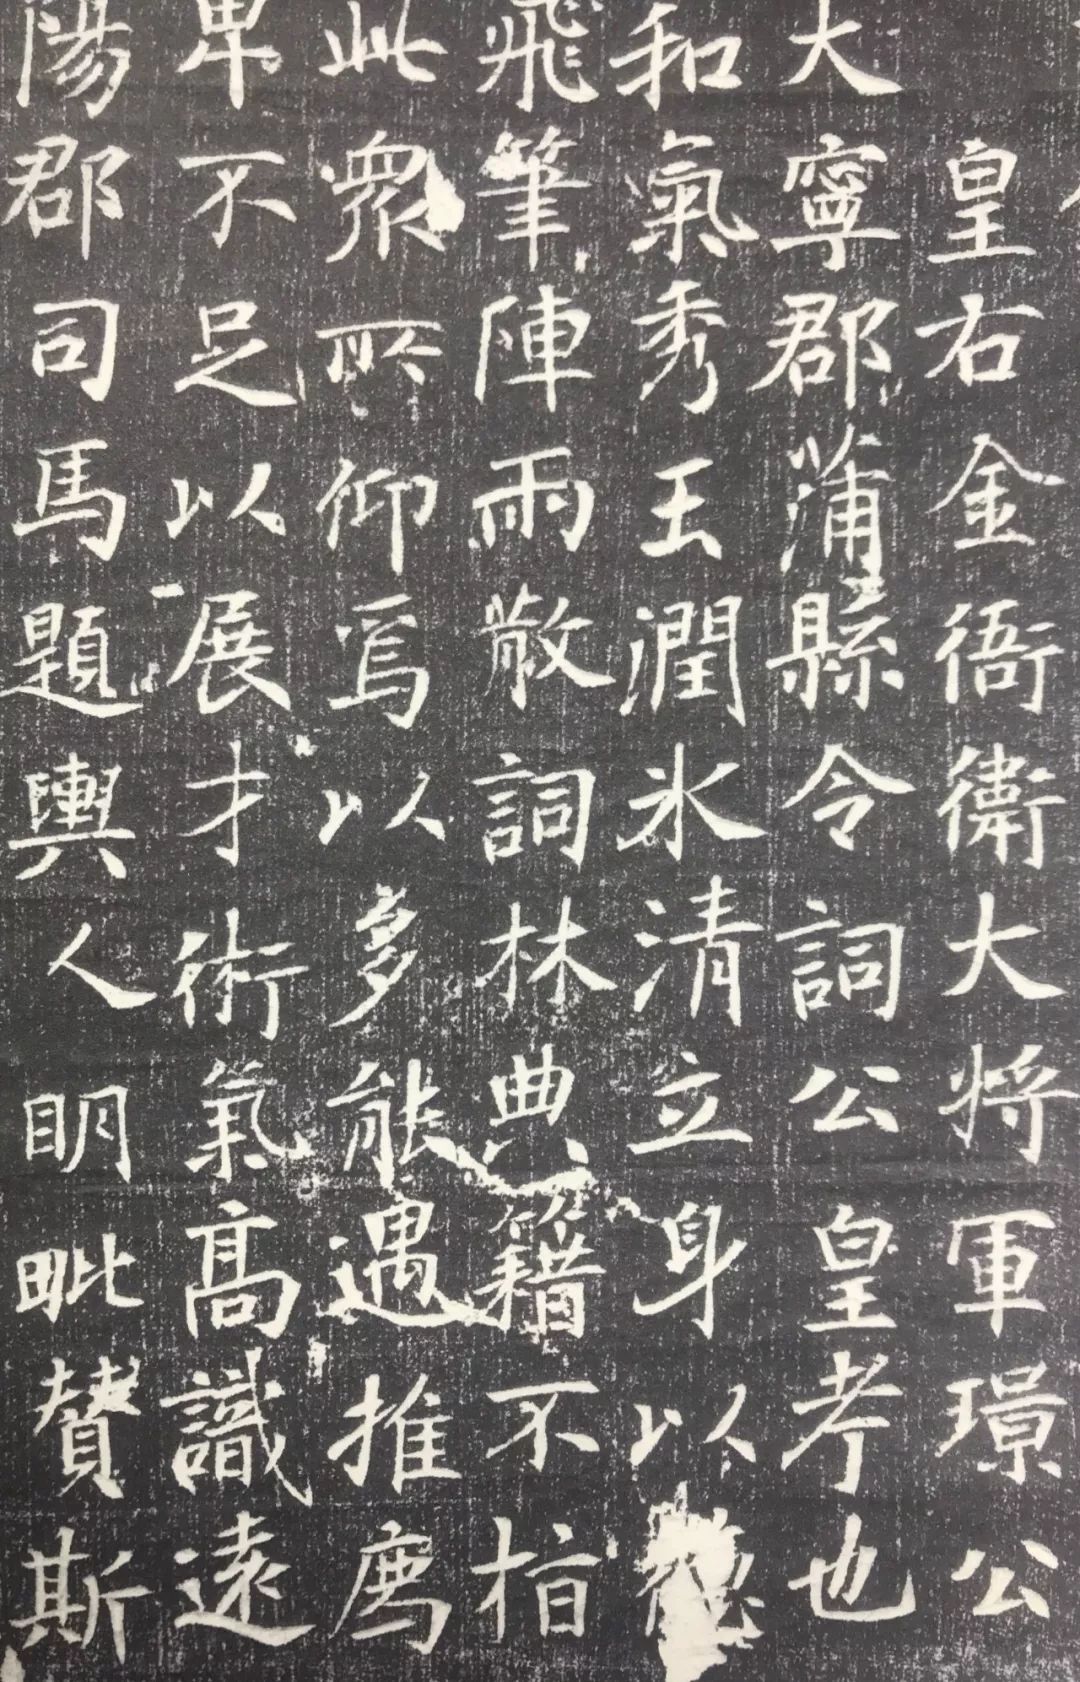 皇右金衙衛大將軍璟公
大寧郡蒲縣令詞公皇考也
和氣秀玉潤氷清立身以德
飛筆陣雨散詞林典籍不指
此衆所仰焉以多能遇推廌
卑不足以展才術氣高識遠
陽郡司馬題輿人明毗贊斯